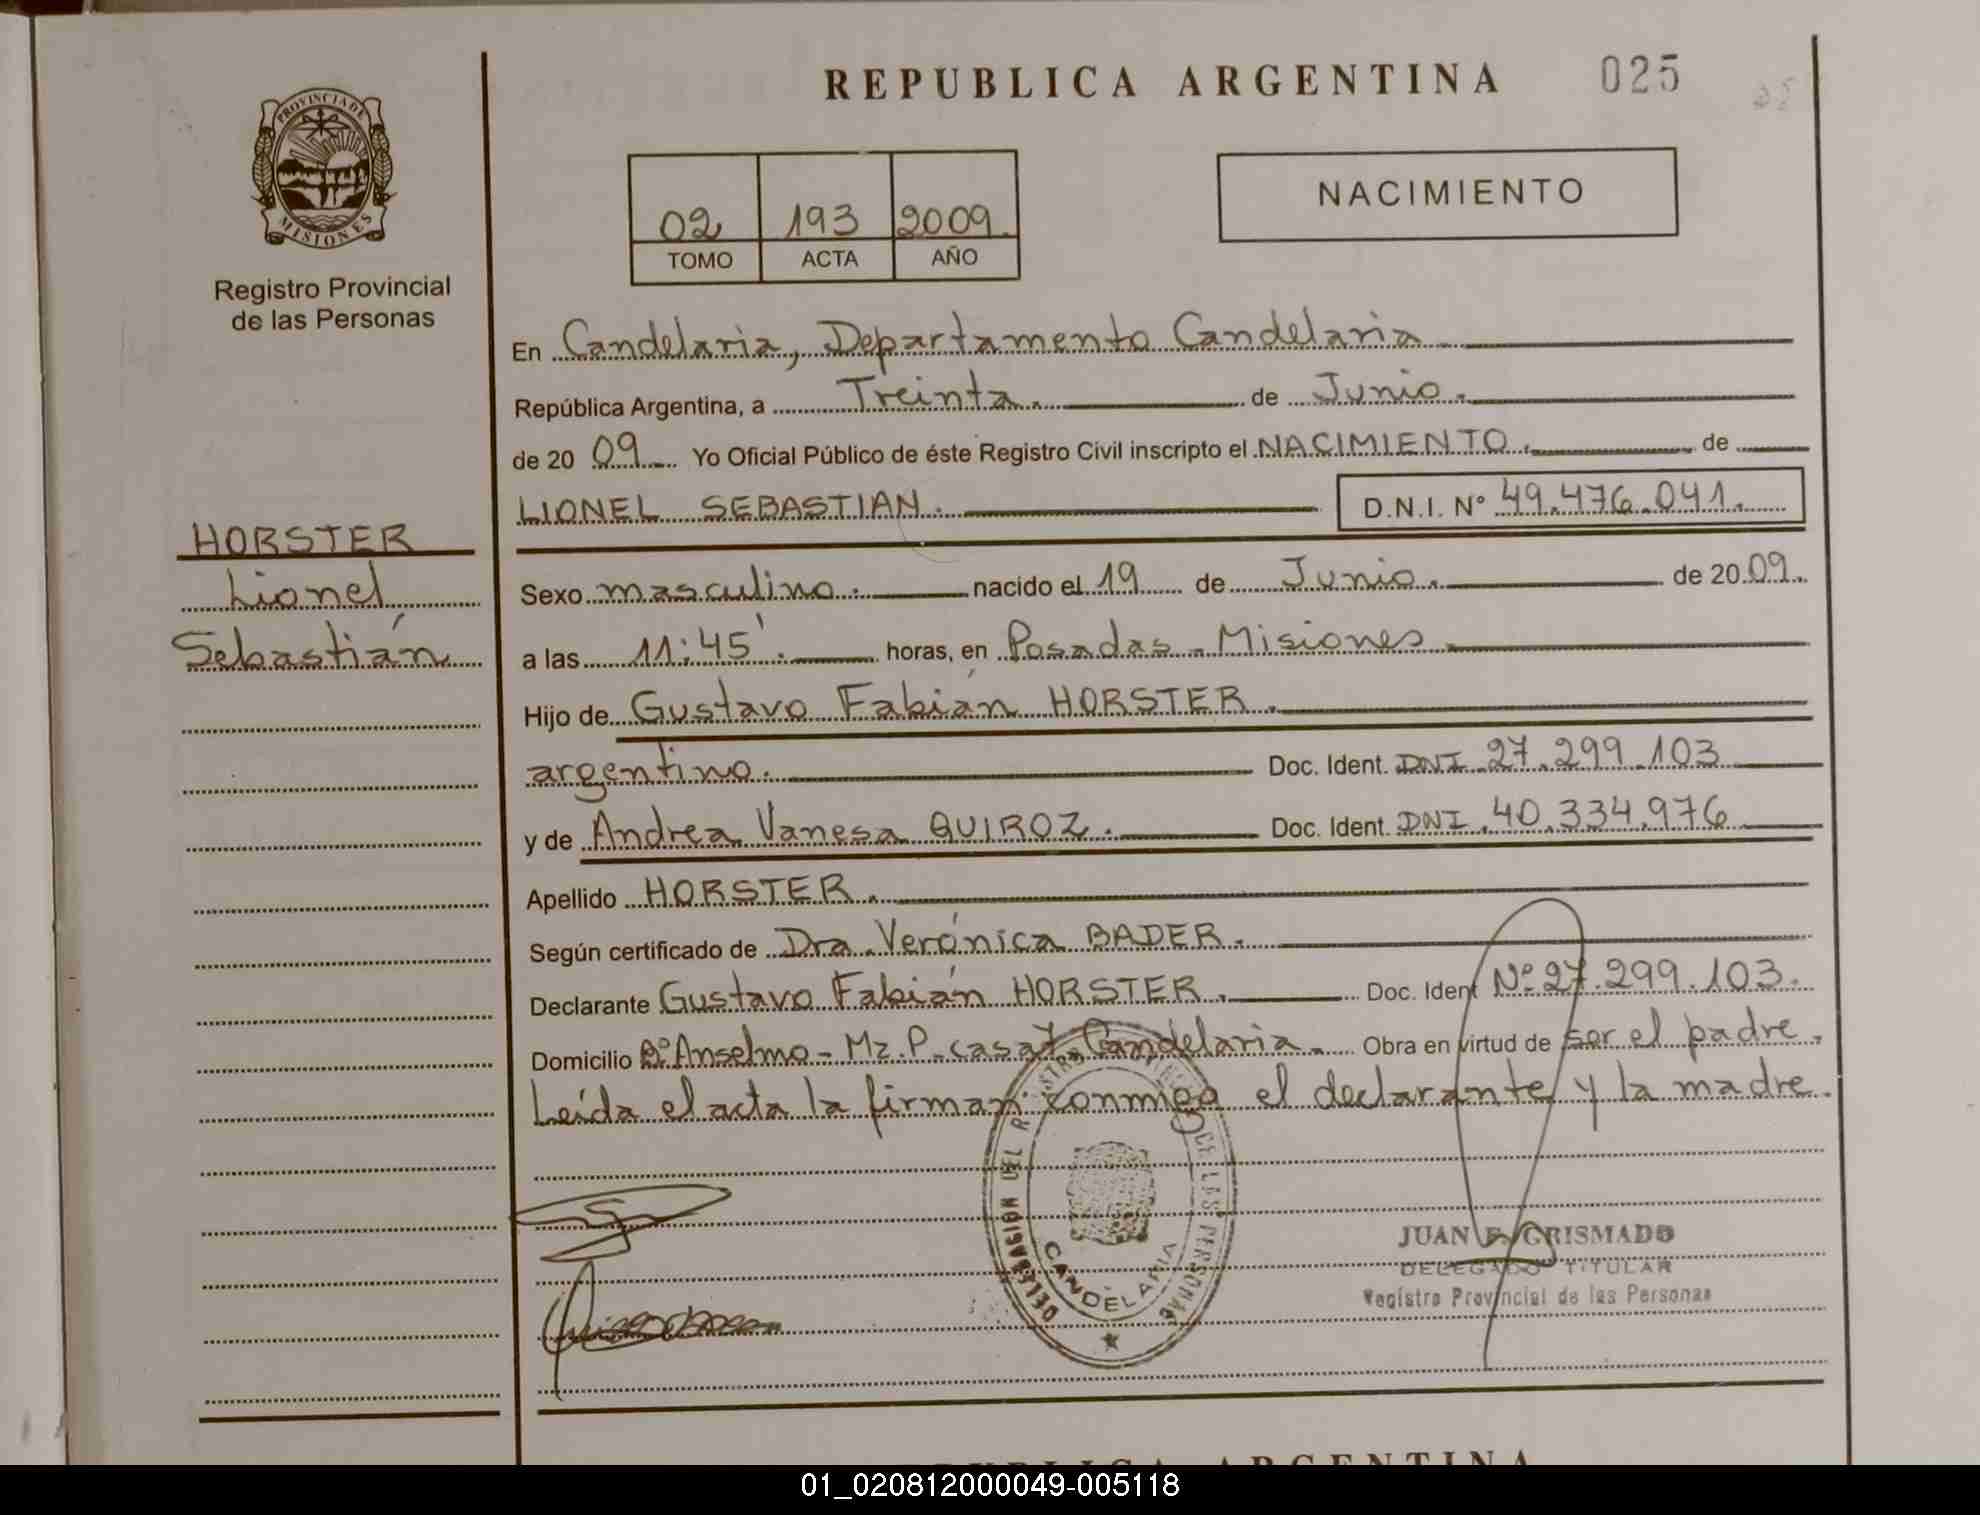 REPUBLICA ARGENTINA 025
PROVINCIA DE
MISIONES
Registro Provincial
de las Personas
02 193 2009.
TOMO ACTA AÑO
NACIMIENTO
HORSTER
Lionel
Sebastián
En Candelaria, Departamento Candelaria
República Argentina, a Treinta. de Junio.
de 20 09 Yo Oficial Público de éste Registro Civil inscripto el NACIMIENTO. de
LIONEL SEBASTIAN. D.N.I. Nº 49.476.041.
Sexo masculino. nacido el 19 de Junio. de 20 09.
a las 11:45'. horas, en Posadas - Misiones
Hijo de Gustavo Fabián HORSTER.
argentino. Doc. Ident. DNI 27.299.103
y de Andrea Vanesa QUIROZ. Doc. Ident. DNI. 40.334.976
Apellido HORSTER.
Según certificado de Dra. Verónica BADER.
Declarante Gustavo Fabián HORSTER. Doc. Ident Nº 27.299.103.
Domicilio Bº Anselmo - Mz. P. casa Candelaria. Obra en virtud de ser el padre.
Leída el acta la firman conmigo el declarante y la madre.
DELEGACION DEL REGISTRO DE LAS PERSONAS
CANDELARIA
JUAN E. GRISMADO
DELEGADO TITULAR
Registro Provincial de las Personas
REPUBLICA ARGENTINA
01_020812000049-005118